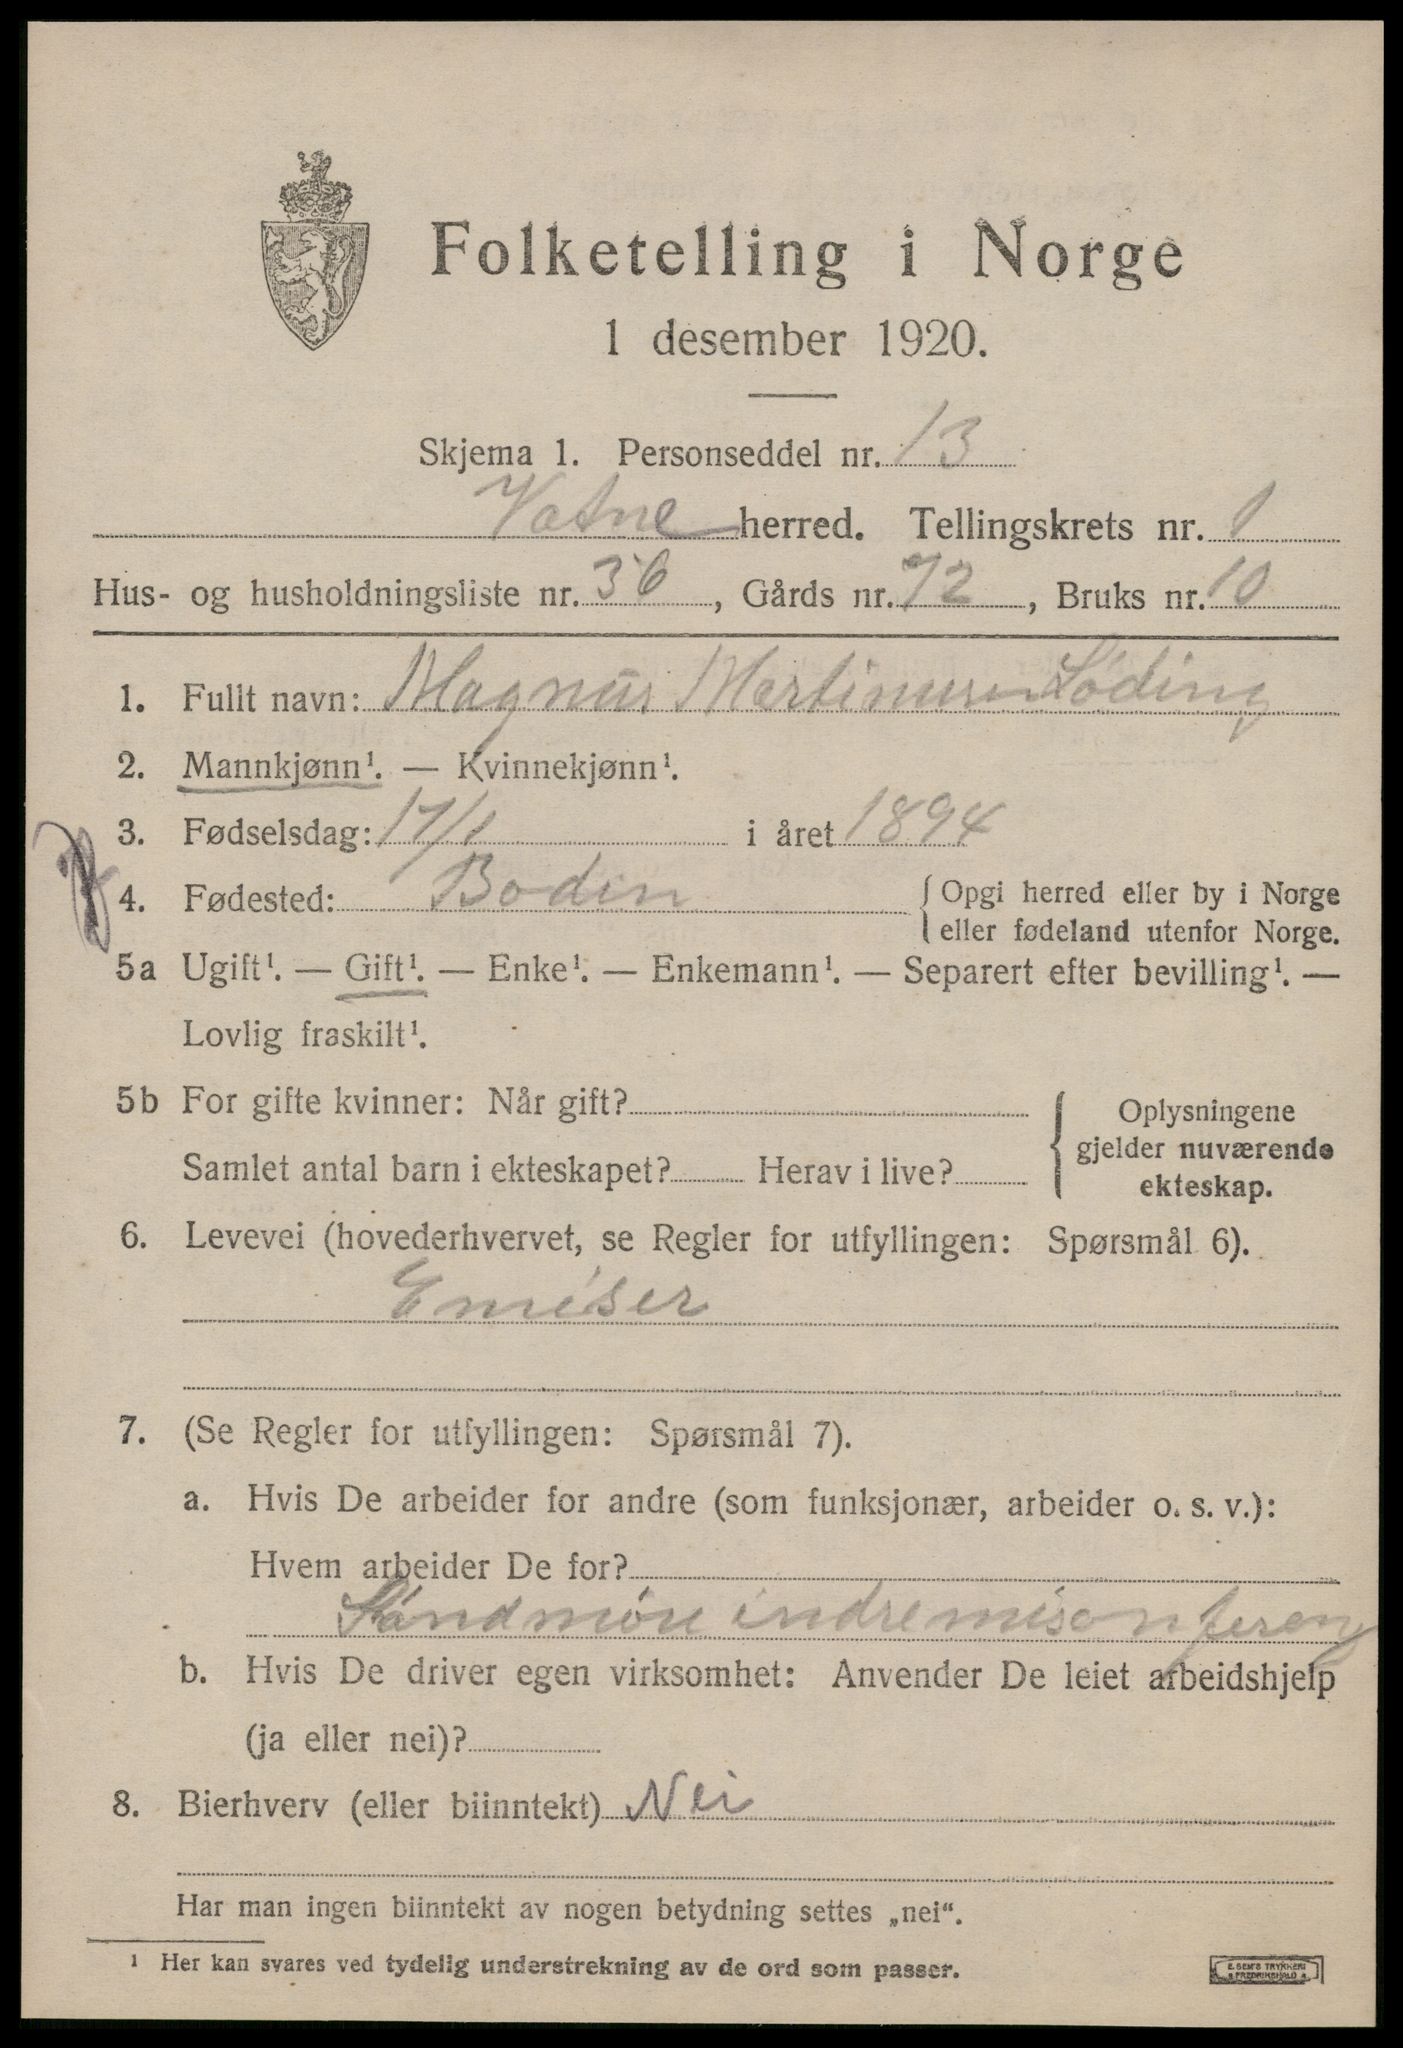 Folketelling i Norge
1 desember 1920.
Skjema 1. Personseddel nr. 13
Vatne herred. Tellingskrets nr. 1
Hus- og husholdningsliste nr. 36, Gårds nr. 72, Bruks nr. 10
1. Fullt navn: Magnus Martinusen Løding
2. Mannkjønn¹. — Kvinnekjønn¹.
3. Fødselsdag: 17/1 i året 1894
4. Fødested: Bodin { Opgi herred eller by i Norge
eller fødeland utenfor Norge.
5a Ugift¹. — Gift¹. — Enke¹. — Enkemann¹. — Separert efter bevilling¹. —
Lovlig fraskilt¹.
5b For gifte kvinner: Når gift?
Samlet antal barn i ekteskapet? Herav i live?
Oplysningene
gjelder nuværende
ekteskap.
6. Levevei (hovederhvervet, se Regler for utfyllingen: Spørsmål 6).
Emiser
7. (Se Regler for utfyllingen: Spørsmål 7).
a. Hvis De arbeider for andre (som funksjonær, arbeider o. s. v.):
Hvem arbeider De for?
Søndmøre indremison
b. Hvis De driver egen virksomhet: Anvender De leiet arbeidshjelp
(ja eller nei)?
8. Bierhverv (eller biinntekt) Nei
Har man ingen biinntekt av nogen betydning settes „nei“.
¹ Her kan svares ved tydelig understrekning av de ord som passer.
E. SEM'S TRYKKERI
FREDRIKSHALD